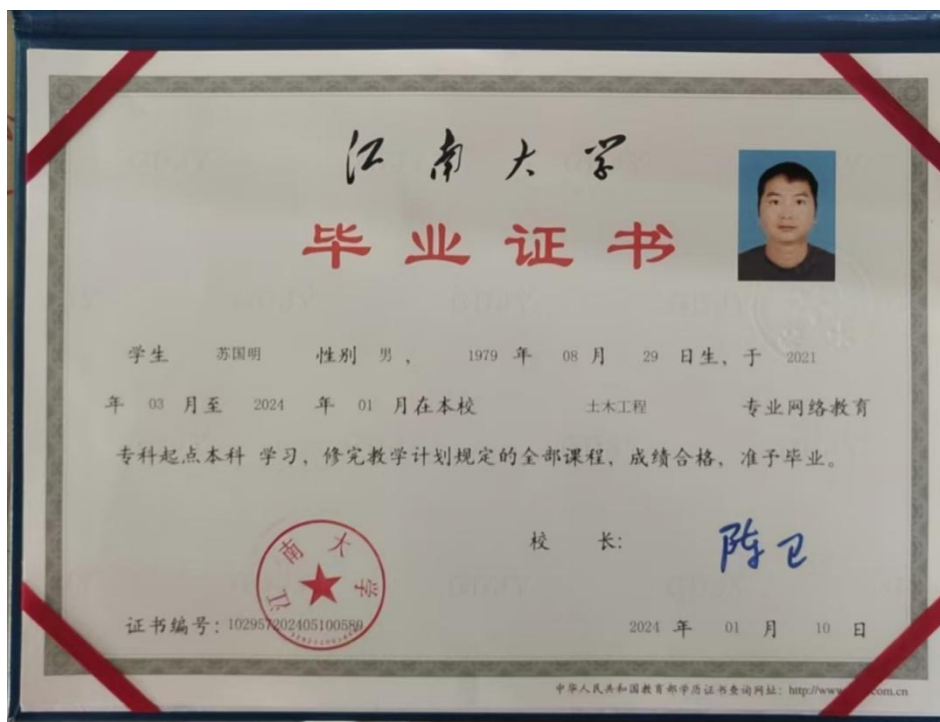 江南大学
毕业证书
学生 苏国明 性别 男 , 1979 年 08 月 29 日生, 于 2021
年 03 月至 2024 年 01 月在本校 土木工程 专业网络教育
专科起点本科 学习, 修完教学计划规定的全部课程, 成绩合格, 准予毕业。
校 长: 陈卫
江南大学
证书编号: 102957202405100589
2024 年 01 月 10 日
中华人民共和国教育部学历证书查询网址: http://www. .com.cn